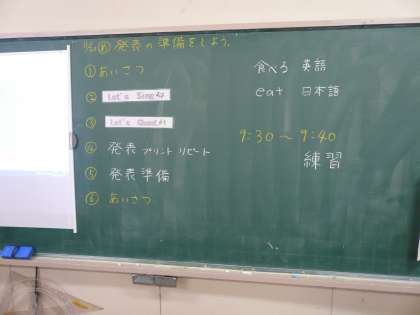 発表の準備をしよう。
① あいさつ
② Let's Sing
③ Let's Quest #1
④ 発表 プリント リピート
⑤ 発表準備
⑥ あいさつ
食べる 英語
eat 日本語
9:30 〜 9:40
練習